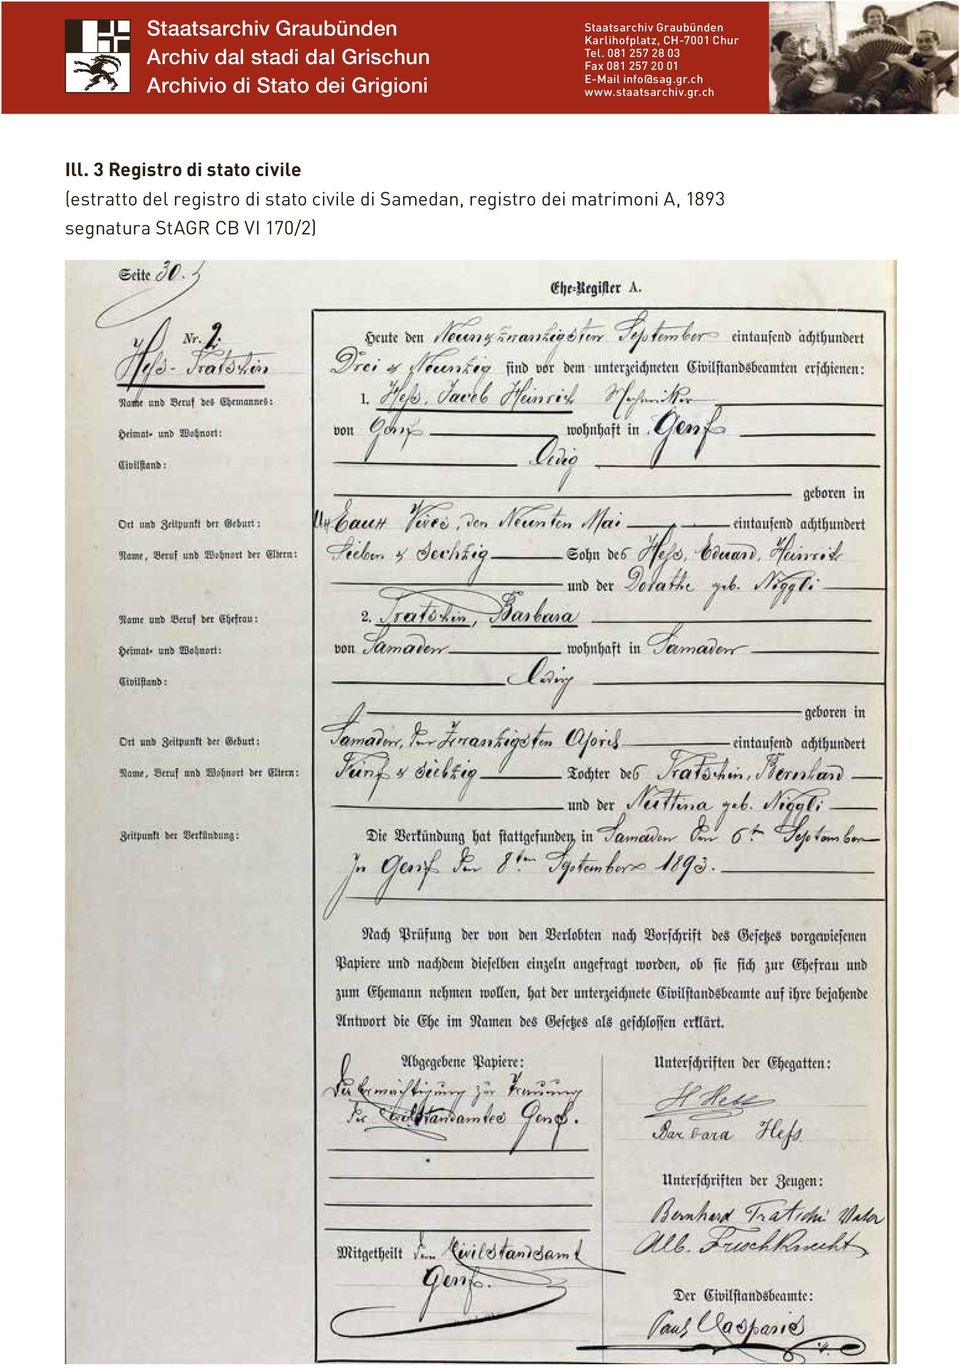 Staatsarchiv Graubünden
Archiv dal stadi dal Grischun
Archivio di Stato dei Grigioni
Staatsarchiv Graubünden
Karlihofplatz, CH-7001 Chur
Tel. 081 257 28 03
Fax 081 257 20 01
E-Mail info@sag.gr.ch
www.staatsarchiv.gr.ch
Ill. 3 Registro di stato civile
(estratto del registro di stato civile di Samedan, registro dei matrimoni A, 1893
segnatura StAGR CB VI 170/2)
Seite 30.
Ehe-Register A.
Nr. 2.
Hess-Tratschin
Name und Beruf des Ehemannes:
Heimat- und Wohnort:
Civilstand:
Ort und Zeitpunkt der Geburt:
Name, Beruf und Wohnort der Eltern:
Name und Beruf der Ehefrau:
Heimat- und Wohnort:
Civilstand:
Ort und Zeitpunkt der Geburt:
Name, Beruf und Wohnort der Eltern:
Zeitpunkt der Verkündung:
Heute den Neunundzwanzigsten September eintausend achthundert
Drei & Neunzig sind vor dem unterzeichneten Civilstandsbeamten erschienen:
1. Hess, Jacob Heinrich Mechaniker
von Genf wohnhaft in Genf
Ledig
geboren in
Eaux Vives, den Neunten Mai eintausend achthundert
Sieben & Sechzig Sohn des Hess, Eduard, Heinrich
und der Dorathe geb. Niggli
2. Tratschin, Barbara
von Samaden wohnhaft in Samaden
Ledig
geboren in
Samaden, den Zwanzigsten April eintausend achthundert
Fünf & Siebzig Tochter des Tratschin, Bernhard
und der Nuttina geb. Niggli
Die Verkündung hat stattgefunden in Samaden den 6ten September
In Genf den 8ten September 1893.
Nach Prüfung der von den Verlobten nach Vorschrift des Gesetzes vorgewiesenen
Papiere und nachdem dieselben einzeln angefragt worden, ob sie sich zur Ehefrau und
zum Ehemann nehmen wollen, hat der unterzeichnete Civilstandsbeamte auf ihre bejahende
Antwort die Ehe im Namen des Gesetzes als geschlossen erklärt.
Abgegebene Papiere:
Die Ermächtigung zur Trauung
des Civilstandamtes Genf.
Mitgetheilt dem Civilstandsamt
Genf.
Unterschriften der Ehegatten:
H Hess
Barbara Hess
Unterschriften der Zeugen:
Bernhard Tratschin Vater
Alb. Frischknecht
Der Civilstandsbeamte: